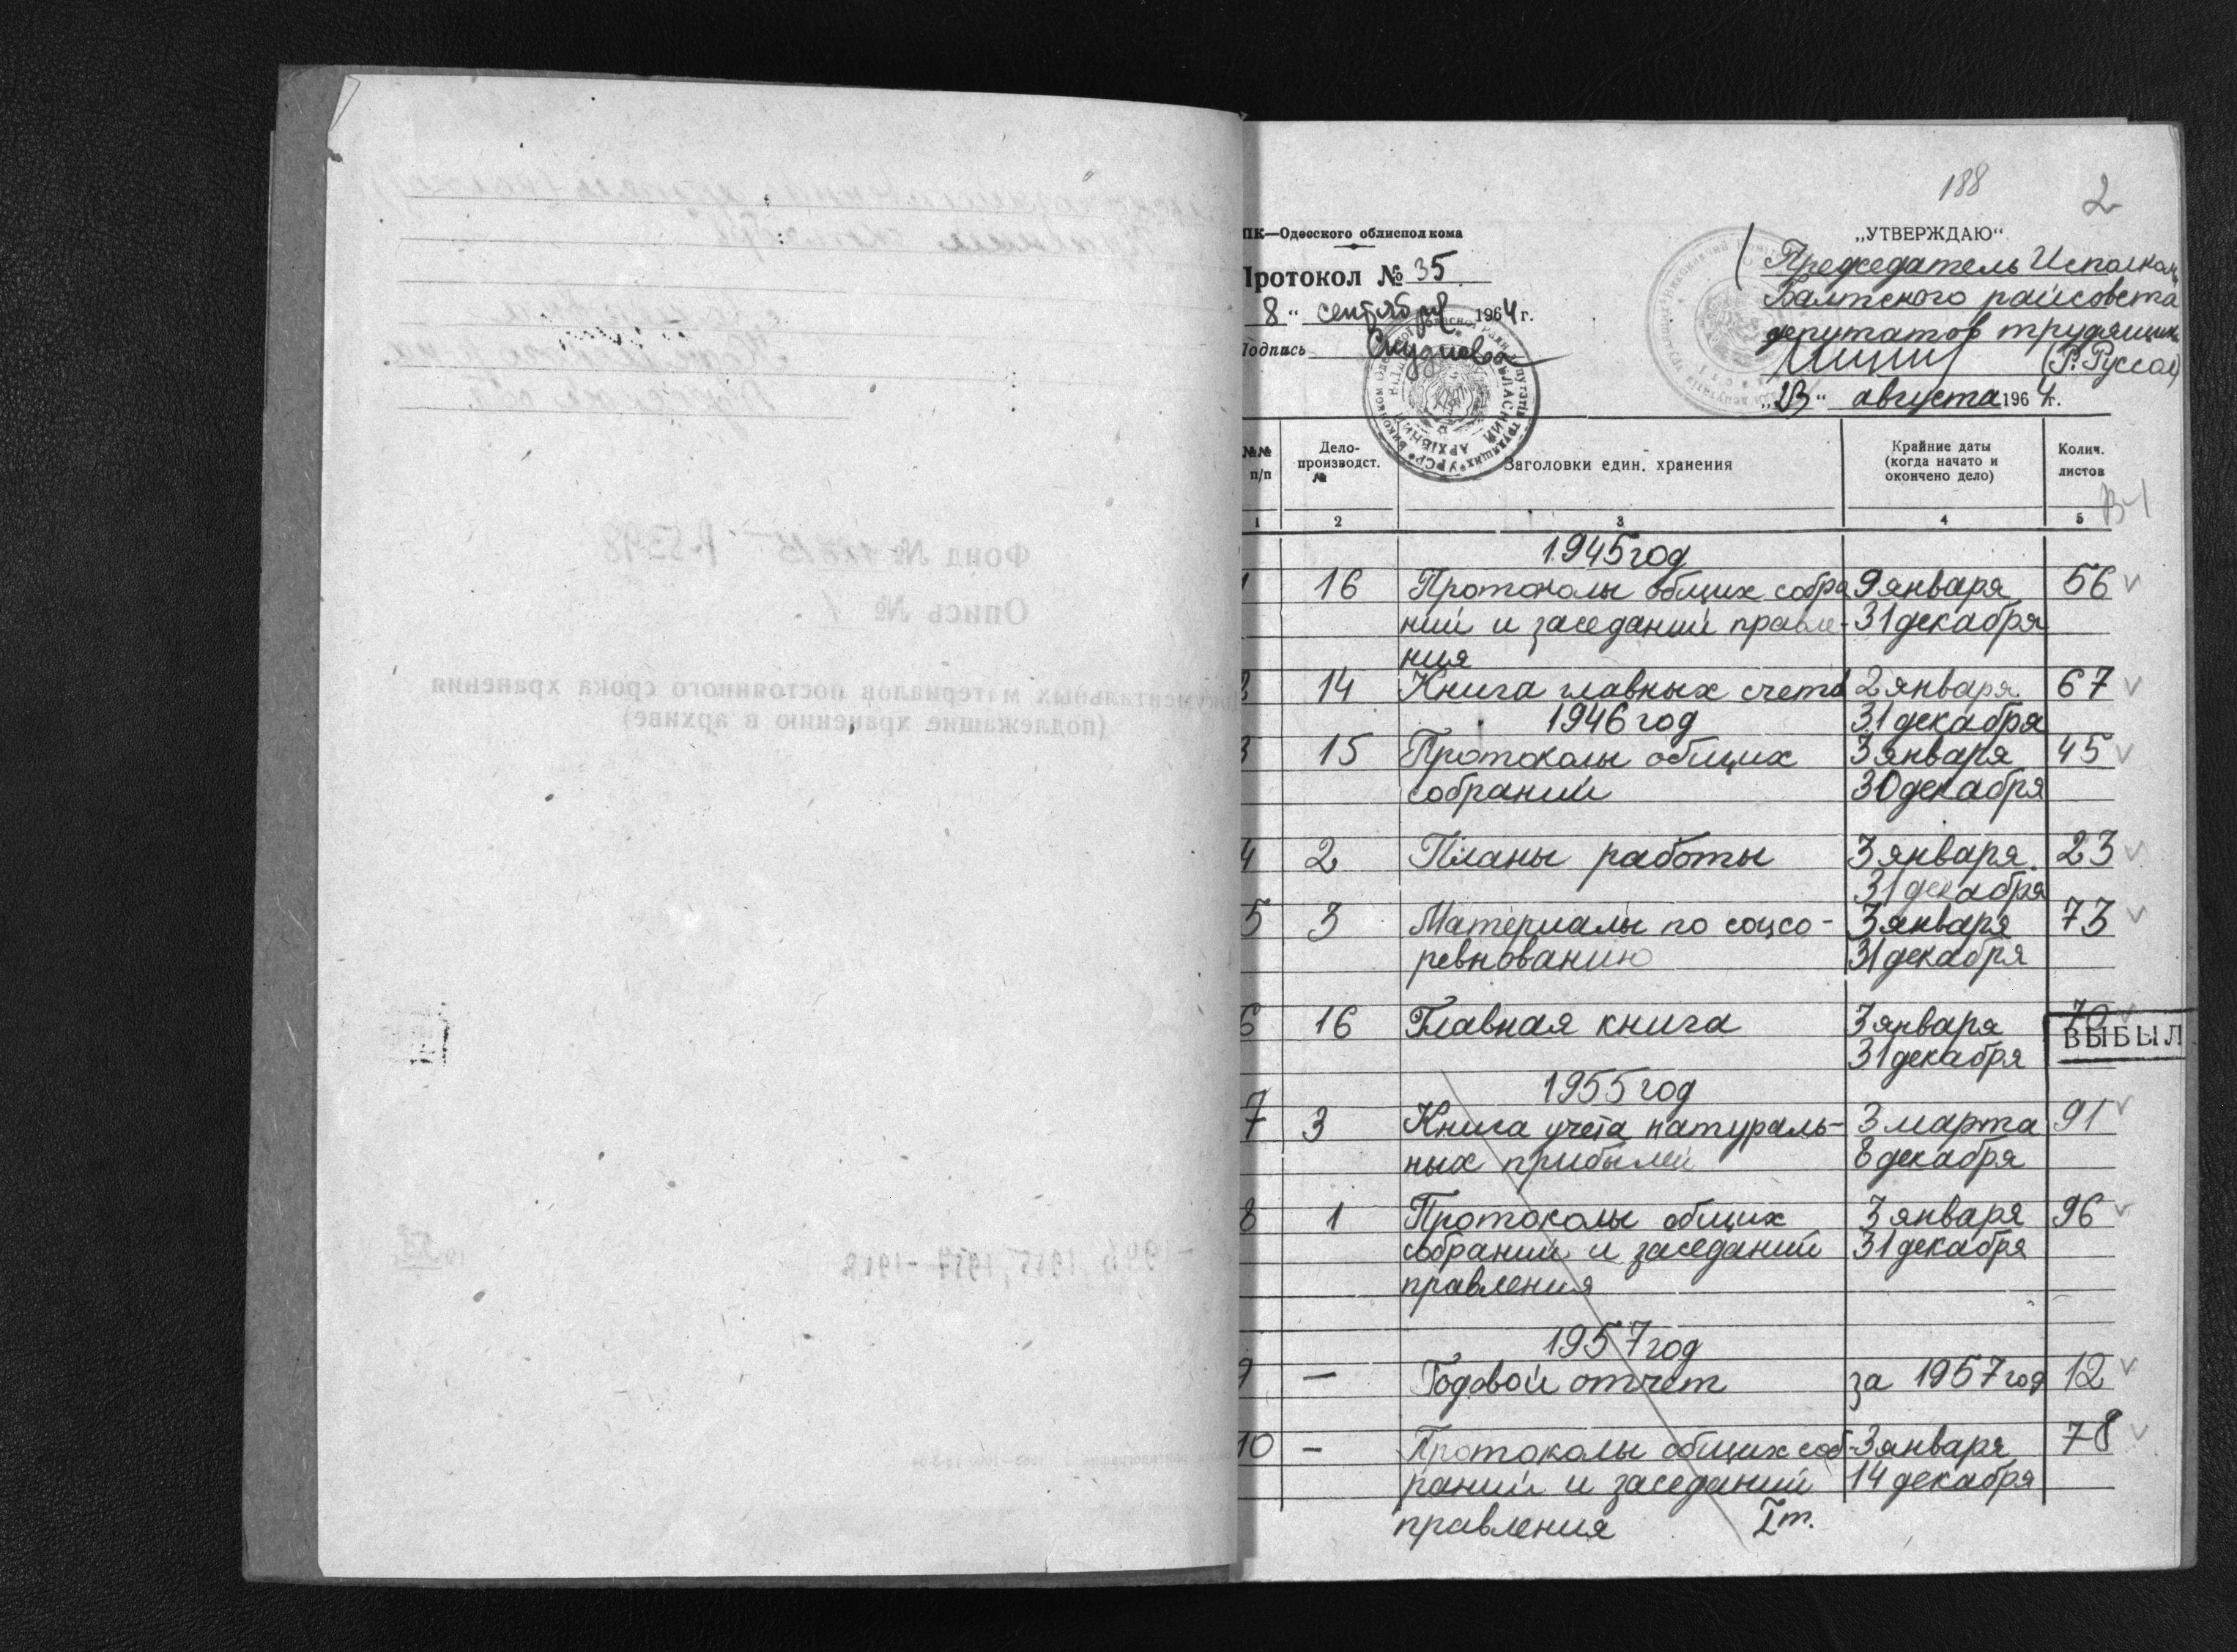 188
2
ПК—Одесского облисполкома
Протокол № 35
8" сентября 1964 г.
Подпись
„УТВЕРЖДАЮ"
Председатель Исполком
Балтского райсовета
депутатов трудящих
(Г. Руссол)
„23" августа 1964 г.
№№ п/п
Дело-производст. №
Заголовки един. хранения
Крайние даты (когда начато и окончено дело)
Колич. листов
1 2 3 4 5
1945 год
1 16 Протоколы общих собра 9 января 56
ний и заседаний правле- 31 декабря
ния
2 14 Книга главных счетов 2 января 67
1946 год 31 декабря
3 15 Протоколы общих 3 января 45
собраний 30 декабря
4 2 Планы работы 3 января 23
31 декабря
5 3 Материалы по соцсо- 3 января 73
ревнованию 31 декабря
6 16 Главная книга 3 января 70
ВЫБЫЛ
31 декабря
1955 год
7 3 Книга учета натураль- 3 марта 91
ных прибылей 8 декабря
8 1 Протоколы общих 3 января 96
собраний и заседаний 31 декабря
правления
1957 год
9 — Годовой отчет за 1957 год 12
10 — Протоколы общих соб- 3 января 78
раний и заседаний 14 декабря
правления I т.